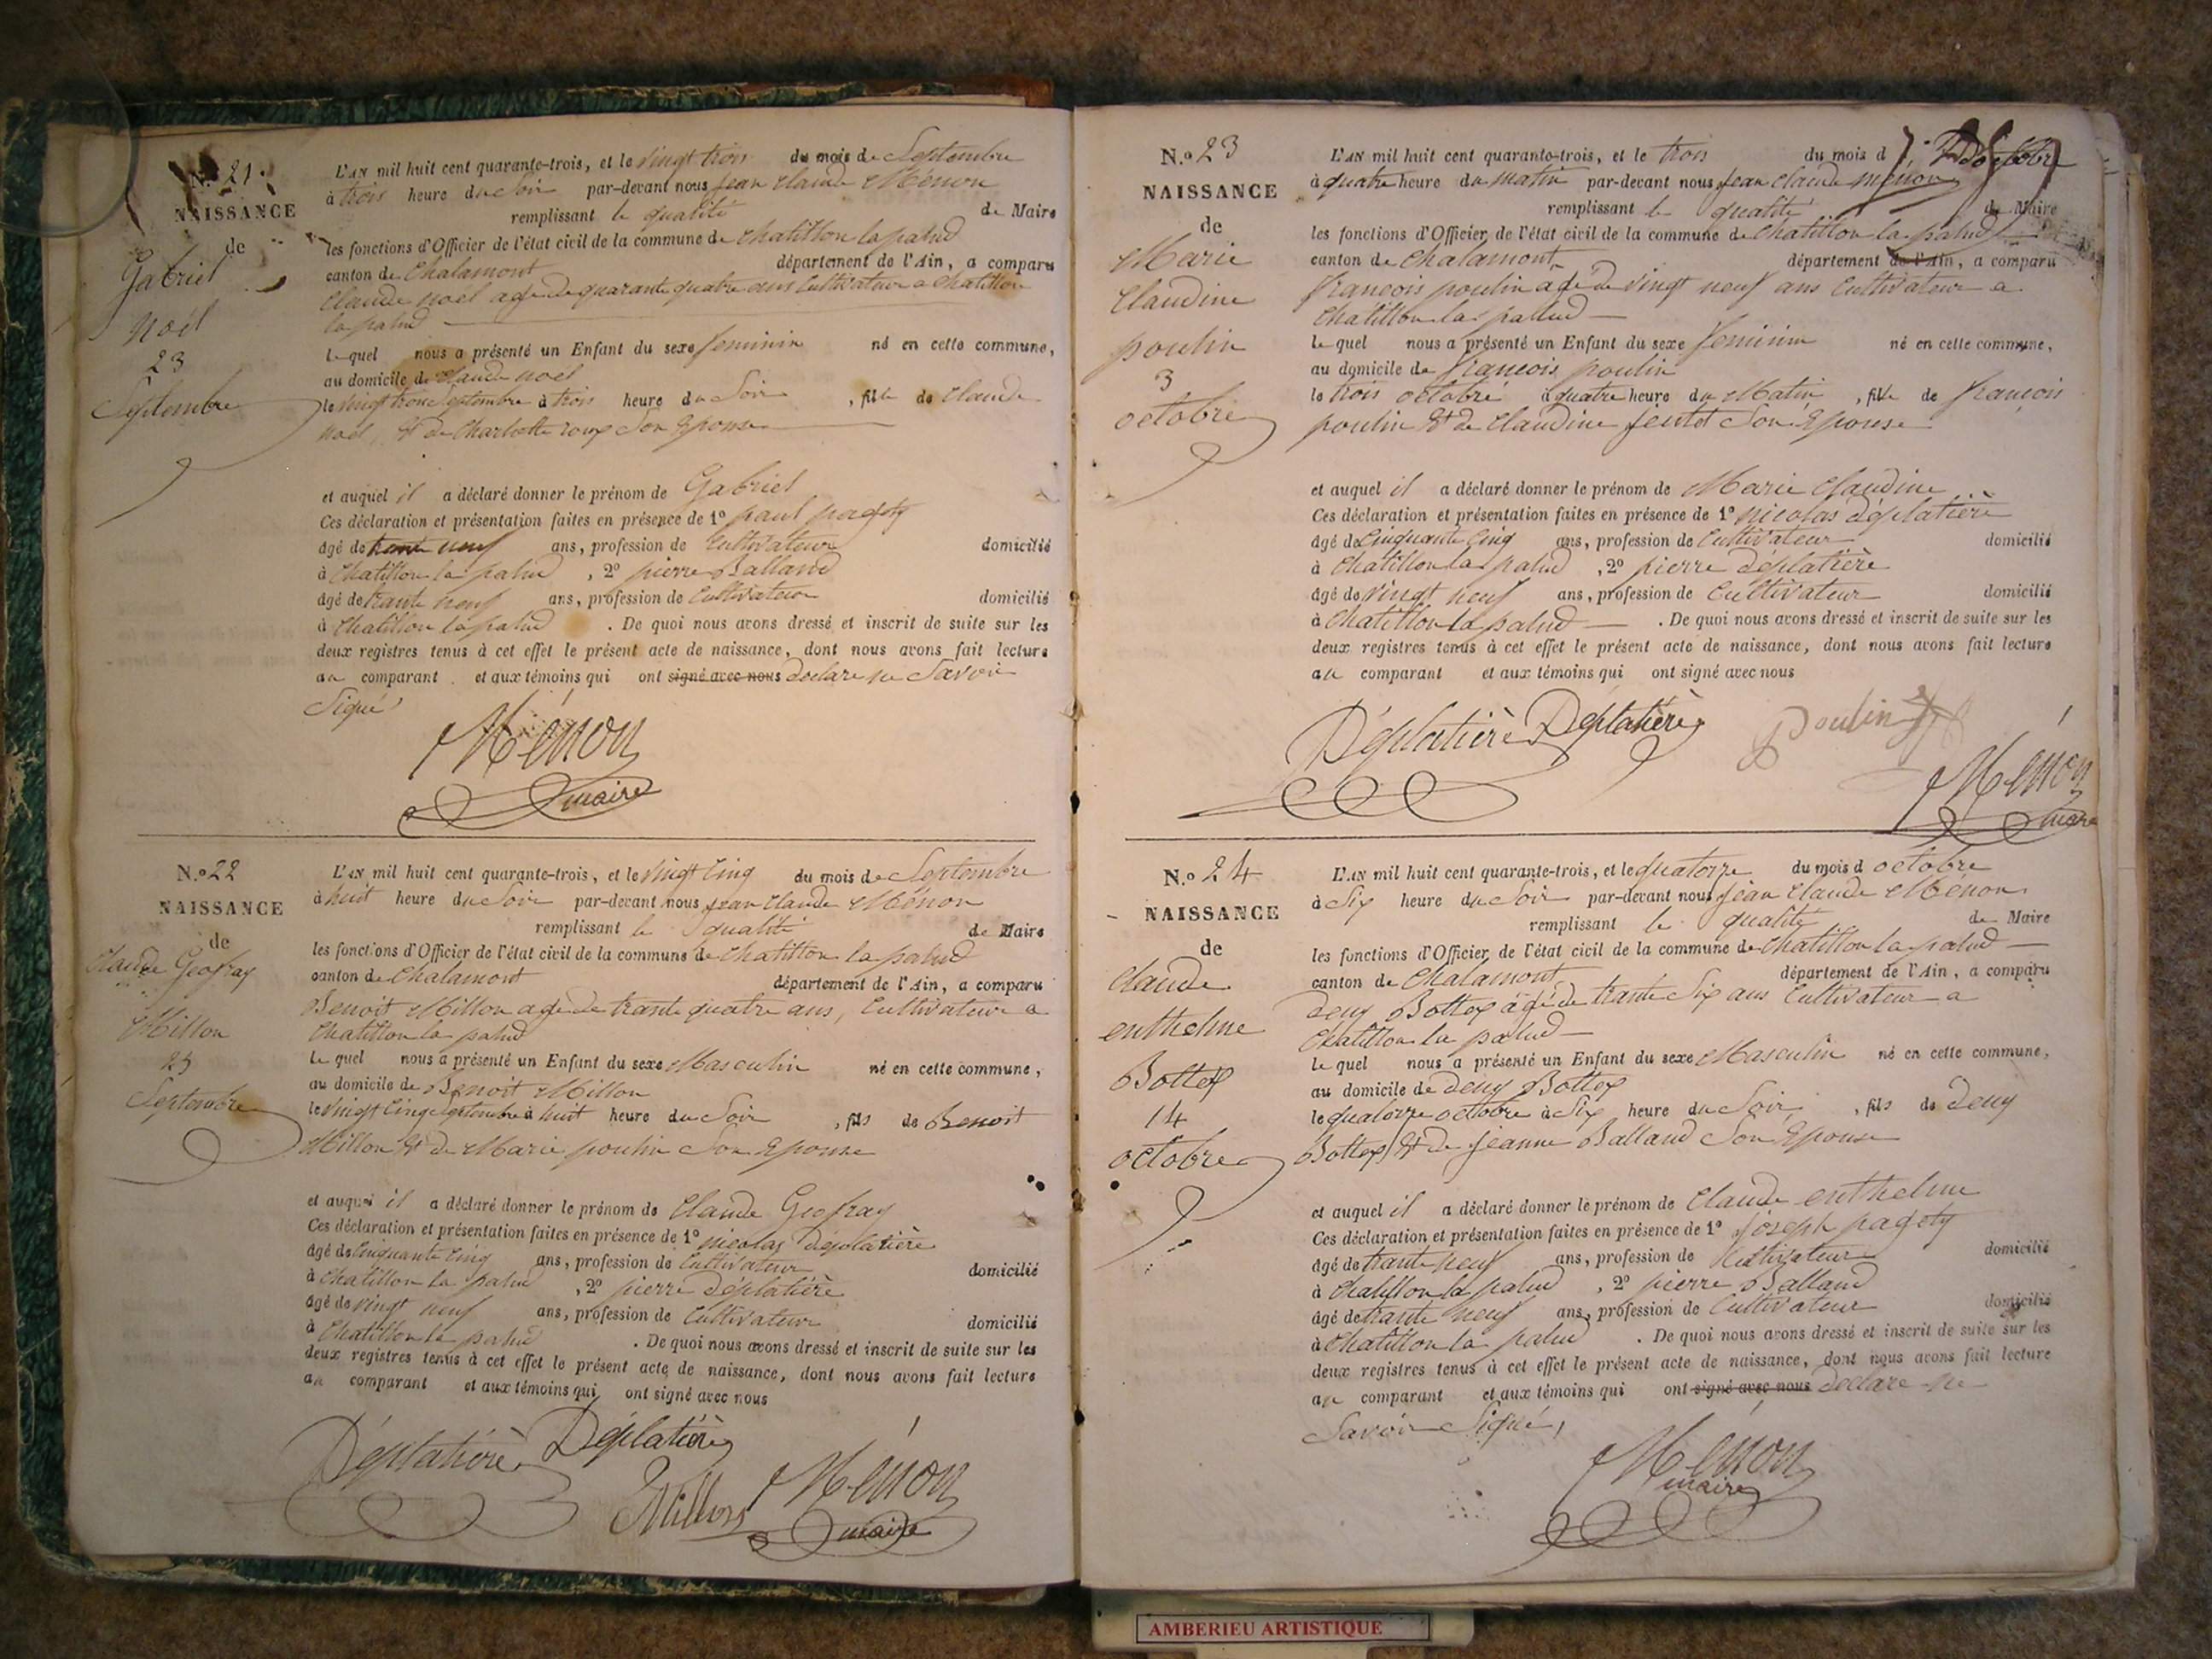 N.o 21.
NAISSANCE
de
Gabriel
Noël
23
Septembre
L'AN mil huit cent quarante-trois, et le Vingt trois du mois de Septembre
à trois heure du Soir par-devant nous Jean Claude Ménon
remplissant le qualité de Maire
les fonctions d'Officier de l'état civil de la commune de Chatillon la palud
canton de Chalamont département de l'Ain, a comparu
Claude noël age de quarante quatre ans Cultivateur a Chatillon
la palud
le quel nous a présenté un Enfant du sexe feminin né en cette commune,
au domicile de Claude noël
le Vingt trois Septembre à trois heure du Soir , fils de Claude
noël, Et de Charlotte roux Son Epouse
et auquel il a déclaré donner le prénom de Gabriel
Ces déclaration et présentation faites en présence de 1o paul pagoty
âgé de trante neuf ans, profession de Cultivateur domicilié
à Chatillon la palud , 2o pierre Balland
âgé de trante neuf ans, profession de Cultivateur domicilié
à Chatillon la palud . De quoi nous avons dressé et inscrit de suite sur les
deux registres tenus à cet effet le présent acte de naissance, dont nous avons fait lecture
au comparant et aux témoins qui ont signé avec nous declare ne Savoir
Signé
Ménon
maire
N.o 22
NAISSANCE
de
Claude Geofray
Millon
25
Septembre
L'AN mil huit cent quarante-trois, et le Vingt Cinq du mois de Septembre
à huit heure du Soir par-devant nous Jean Claude Ménon
remplissant le qualité de Maire
les fonctions d'Officier de l'état civil de la commune de Chatillon la palud
canton de Chalamont département de l'Ain, a comparu
Benoit Millon age de trante quatre ans, Cultivateur a
Chatillon la palud
le quel nous a présenté un Enfant du sexe Masculin né en cette commune,
au domicile de Benoit Millon
le Vingt Cinq Septembre à huit heure du Soir , fils de Benoit
Millon Et de Marie poulin Son Epouse
et auquel il a déclaré donner le prénom de Claude Geofray
Ces déclaration et présentation faites en présence de 1o nicolas Déplatière
âgé de Cinquante Cinq ans, profession de Cultivateur domicilié
à Chatillon la palud , 2o pierre Déplatière
âgé de vingt neuf ans, profession de Cultivateur domicilié
à Chatillon la palud . De quoi nous avons dressé et inscrit de suite sur les
deux registres tenus à cet effet le présent acte de naissance, dont nous avons fait lecture
au comparant et aux témoins qui ont signé avec nous
Déplatière Déplatière
Millon Ménon
maire
N.o 23
NAISSANCE
de
Marie
Claudine
poulin
3
octobre
L'AN mil huit cent quarante-trois, et le trois du mois d octobre
à quatre heure du matin par-devant nous Jean Claude Ménon
remplissant le qualité de Maire
les fonctions d'Officier de l'état civil de la commune de Chatillon la palud
canton de Chalamont département de l'Ain, a comparu
francois poulin agé de Vingt neuf ans Cultivateur a
Chatillon la pallud
le quel nous a présenté un Enfant du sexe feminin né en cette commune,
au domicile de francois poulin
le trois octobre à quatre heure du Matin , fille de francois
poulin Et de Claudine feutet Son Epouse
et auquel il a déclaré donner le prénom de Marie Claudine
Ces déclaration et présentation faites en présence de 1o nicolas déplatière
âgé de Cinquante Cinq ans, profession de Cultivateur domicilié
à Chatillon la palud , 2o pierre déplatière
âgé de Vingt neuf ans, profession de Cultivateur domicilié
à Chatillon la palud . De quoi nous avons dressé et inscrit de suite sur les
deux registres tenus à cet effet le présent acte de naissance, dont nous avons fait lecture
au comparant et aux témoins qui ont signé avec nous
Déplatière Déplatière Poulin
Ménon
maire
N.o 24
NAISSANCE
de
Claude
enthelme
Bottex
14
octobre
L'AN mil huit cent quarante-trois, et le quatorze du mois d octobre
à Six heure du Soir par-devant nous Jean Claude Ménon
remplissant le qualité de Maire
les fonctions d'Officier de l'état civil de la commune de Chatillon la palud
canton de Chalamont département de l'Ain, a comparu
Deny Bottex agé de trante Six ans Cultivateur a
Chatillon la palud
le quel nous a présenté un Enfant du sexe Masculin né en cette commune,
au domicile de Deny Bottex
le quatorze octobre à Six heure du Soir , fils de Deny
Bottex Et de Jeanne Balland Son Epouse
et auquel il a déclaré donner le prénom de Claude enthelme
Ces déclaration et présentation faites en présence de 1o Joseph pagoty
âgé de trante neuf ans, profession de Cultivateur domicilié
à Chatillon la palud , 2o pierre Balland
âgé de trante neuf ans, profession de Cultivateur domicilié
à Chatillon la palud . De quoi nous avons dressé et inscrit de suite sur les
deux registres tenus à cet effet le présent acte de naissance, dont nous avons fait lecture
au comparant et aux témoins qui ont signé avec nous declare ne
Savoir Signé,
Ménon
maire
AMBERIEU ARTISTIQUE